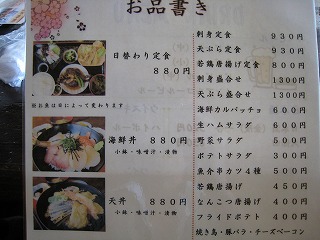 お品書き
日替わり定食
880円
※お魚は日によって変わります
海鮮丼 880円
小鉢・味噌汁・漬物
天丼 880円
小鉢・味噌汁・漬物
刺身定食 930円
天ぷら定食 930円
若鶏唐揚げ定食 880円
刺身盛合せ 1300円
天ぷら盛合せ 1300円
海鮮カルパッチョ 600円
生ハムサラダ 600円
野菜サラダ 500円
ポテトサラダ 300円
魚介串カツ4種 500円
若鶏唐揚げ 450円
なんこつ唐揚げ 400円
フライドポテト 400円
焼き鳥・豚バラ・チーズベーコン